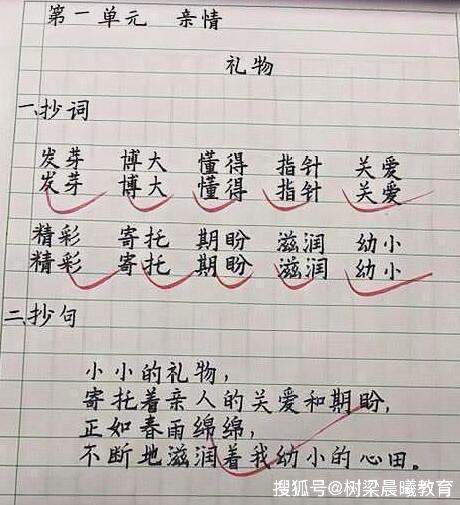 第一单元 亲情
礼物
一、抄词
发芽 博大 懂得 指针 关爱
发芽 博大 懂得 指针 关爱
精彩 寄托 期盼 滋润 幼小
精彩 寄托 期盼 滋润 幼小
二、抄句
小小的礼物，
寄托着亲人的关爱和期盼，
正如春雨绵绵，
不断地滋润着我幼小的心田。
搜狐号@树梁晨曦教育